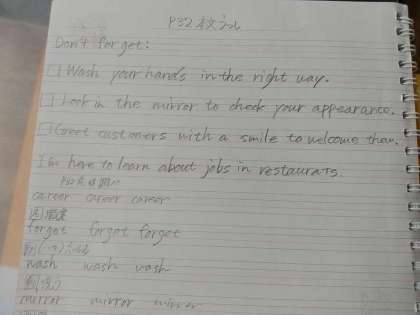 P32本文
Don't forget:
□ Wash your hands in the right way.
□ Look in the mirror to check your appearance.
□ Greet customers with a smile to welcome them.
I'm here to learn about jobs in restaurants.
career career career
forget forget forget
wash wash wash
mirror mirror mirror